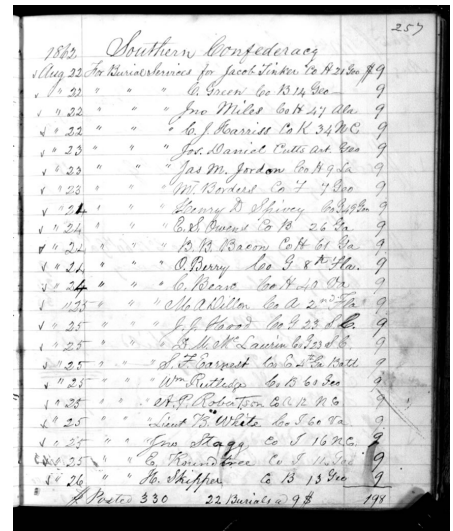 257
1862 Southern Confederacy
Aug 22 For Burial Services for Jacob Tinker Co H 21 Geo $ 9
" 22 " " " C. Green Co B 14 Geo 9
" 22 " " " Jno Miles Co H 47 Ala 9
" 22 " " " C. J. Harriss Co K 34 N C 9
" 23 " " " Jos. Daniel Cutts Art. Geo 9
" 23 " " " Jas M. Jordon Co H 9 La 9
" 23 " " " Wm Borders Co F 7 Geo 9
" 24 " " " Henry D Spivey Co G 49 Geo 9
" 24 " " " E. S. Owens Co B 26 Ga 9
" 24 " " " B. B. Bacon Co H 61 Ga 9
" 24 " " " O. Berry Co G 8 Fla. 9
" 24 " " " C. Beard Co H 40 Va 9
" 25 " " " Mc A Dillon Co A 2nd Fla 9
" 25 " " " J. J. Wood Co G 23 S C. 9
" 25 " " " D. M. Mc Laurin Co G 23 S. C. 9
" 25 " " " S. F. Earnest Co E, 4th Ga Batl 9
" 25 " " " Wm Rutledge Co B 60 Geo 9
" 25 " " " A. P. Robertson Co 12 N C. 9
" 25 " " " Lieut B. White Co I 60 Va. 9
" 25 " " " Jno Stagg Co I 16 N C. 9
" 25 " " " E, Roundtree Co I 9
" 26 " " " H. Skipper Co B 13 Geo 9
Posted 330 22 Burials a 9 $ 198